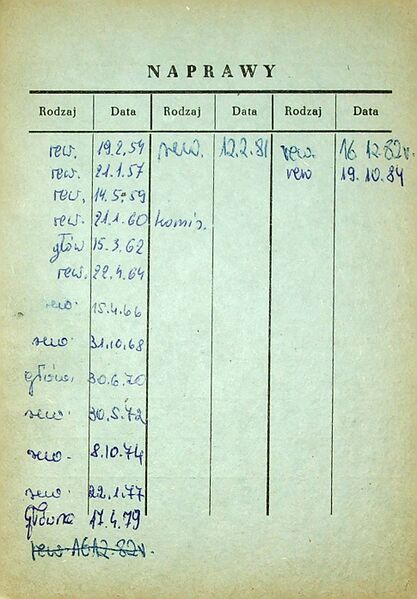 NAPRAWY
Rodzaj Data Rodzaj Data Rodzaj Data
rew. 19.2.54 rew. 12.2.81 rew. 16.12.82r.
rew. 21.1.57 rew 19.10.84
rew. 14.5.59
rew. 21.1.60 komis.
głów 15.3.62
rew. 22.4.64
rew. 15.4.66
rew. 31.10.68
główn. 30.6.70
rew. 30.5.72
rew. 8.10.74
rew. 22.1.77
główna 17.4.79
rew 16.12.82r.